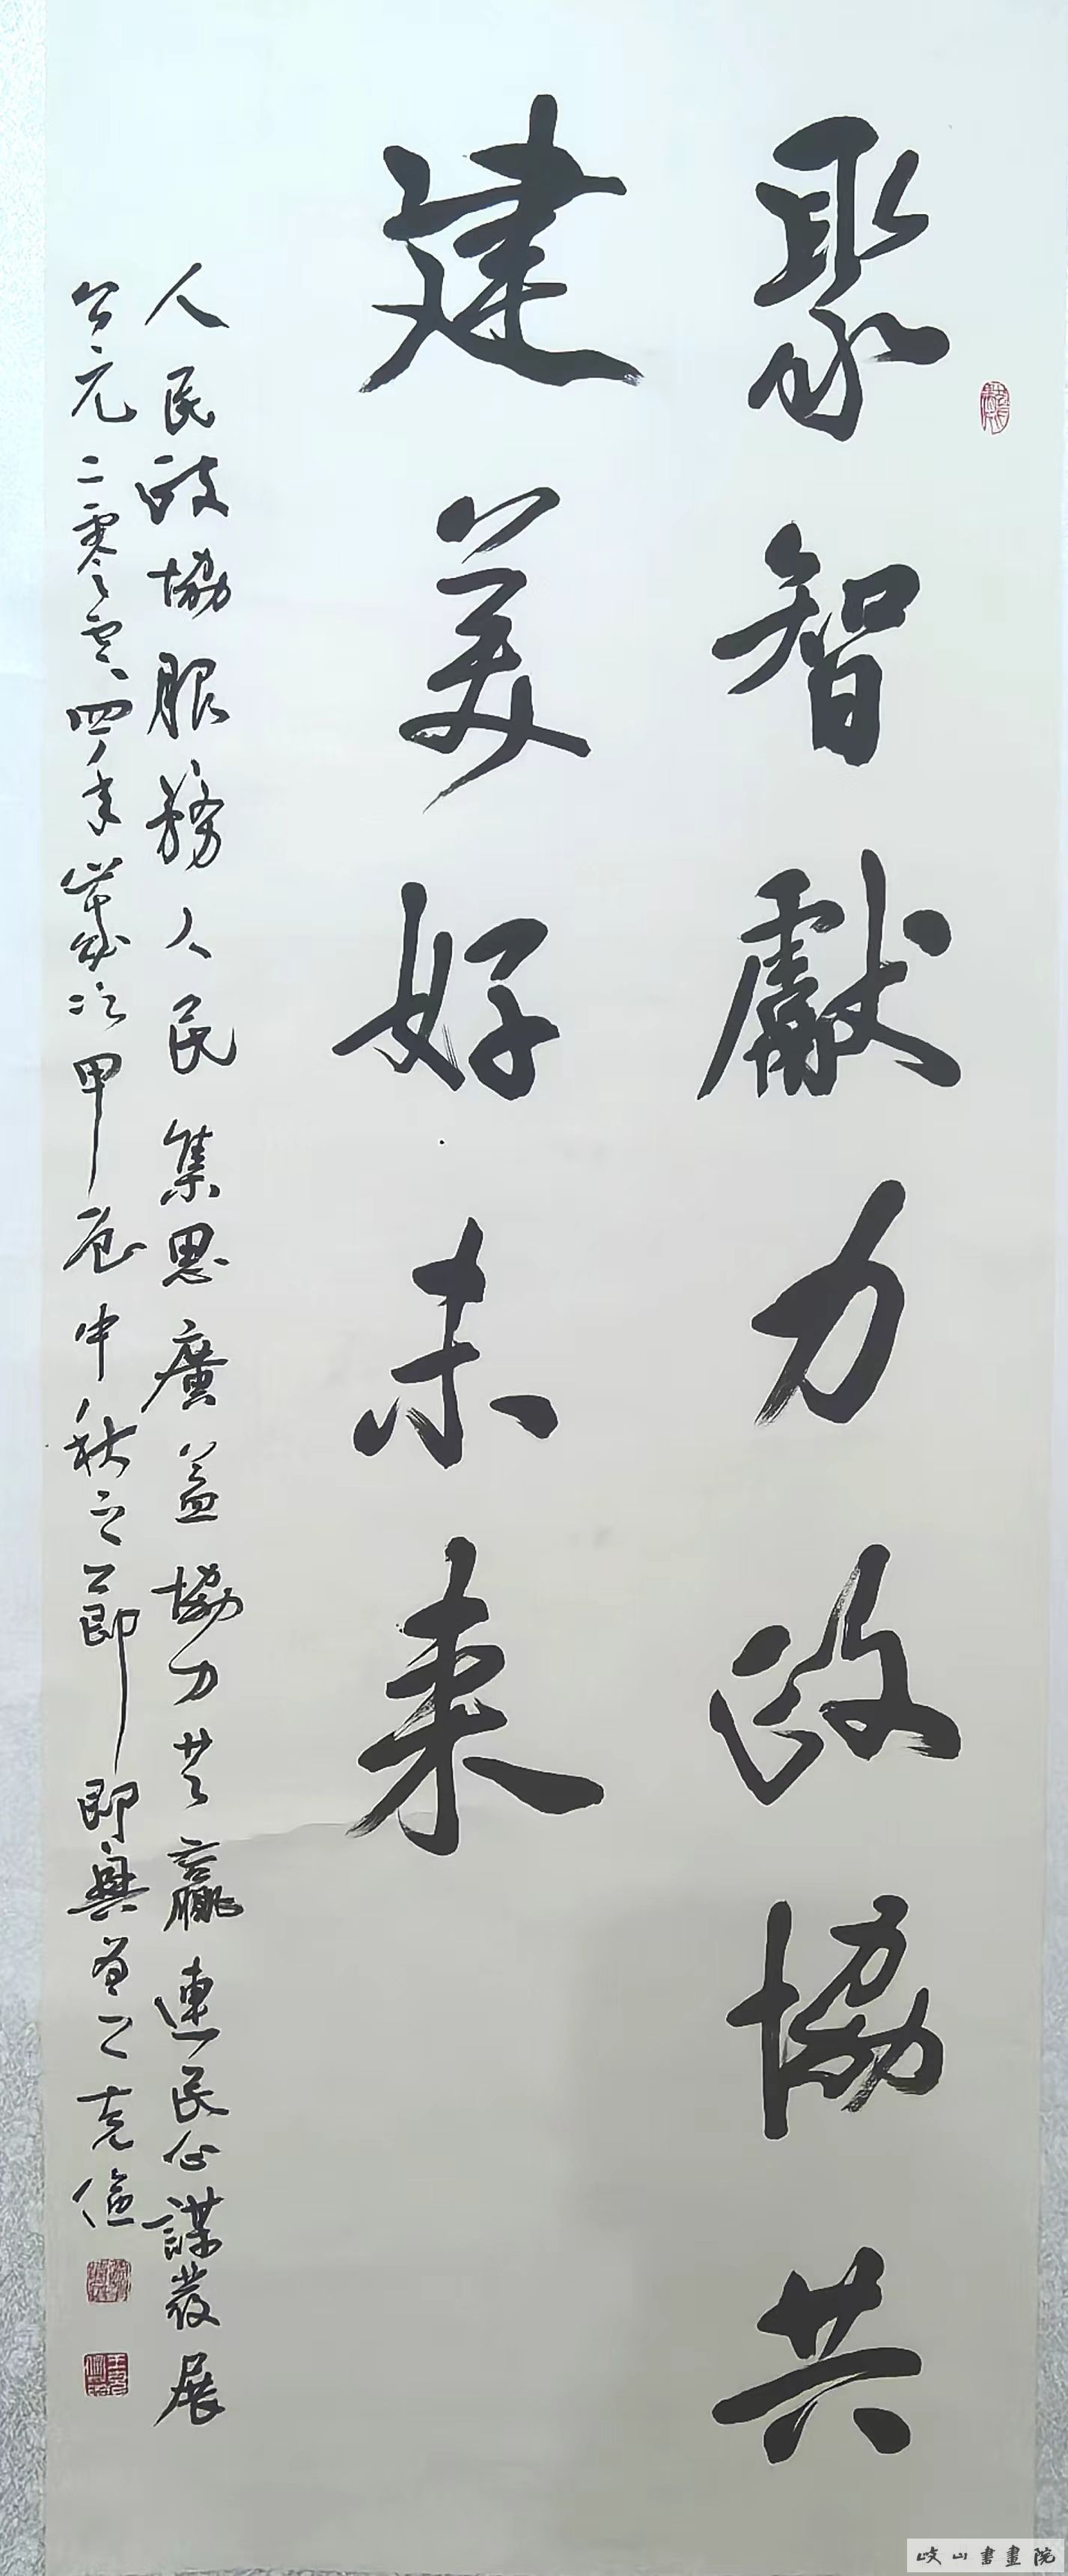 聚智獻力政協共
建美好未来
人民政協服務人民集思廣益協力共贏連民心謀發展
公元二零零四年歲次甲辰中秋之節即興前二克儉
岐山書畫院